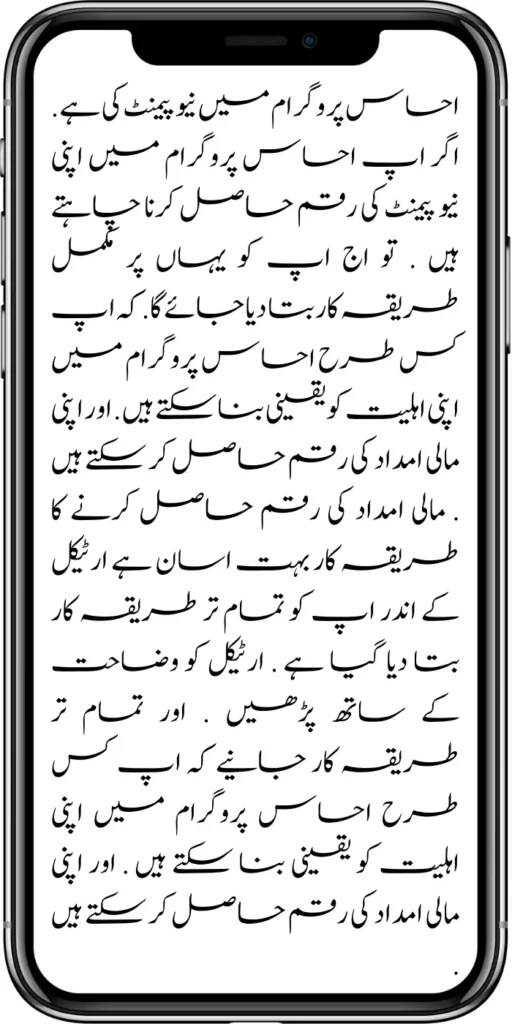 احساس پروگرام میں نیو پیمنٹ کی ہے.
اگر اپ احساس پروگرام میں اپنی
نیو پیمنٹ کی رقم حاصل کرنا چاہتے
ہیں . تو اج اپ کو یہاں پر مکمل
طریقہ کار بتا دیا جائے گا. کہ اپ
کس طرح احساس پروگرام میں
اپنی اہلیت کو یقینی بنا سکتے ہیں. اور اپنی
مالی امداد کی رقم حاصل کر سکتے ہیں
. مالی امداد کی رقم حاصل کرنے کا
طریقہ کار بہت اسان ہے ارٹیکل
کے اندر اپ کو تمام تر طریقہ کار
بتا دیا گیا ہے . ارٹیکل کو وضاحت
کے ساتھ پڑھیں . اور تمام تر
طریقہ کار جانیے کہ اپ کس
طرح احساس پروگرام میں اپنی
اہلیت کو یقینی بنا سکتے ہیں . اور اپنی
مالی امداد کی رقم حاصل کر سکتے ہیں
.